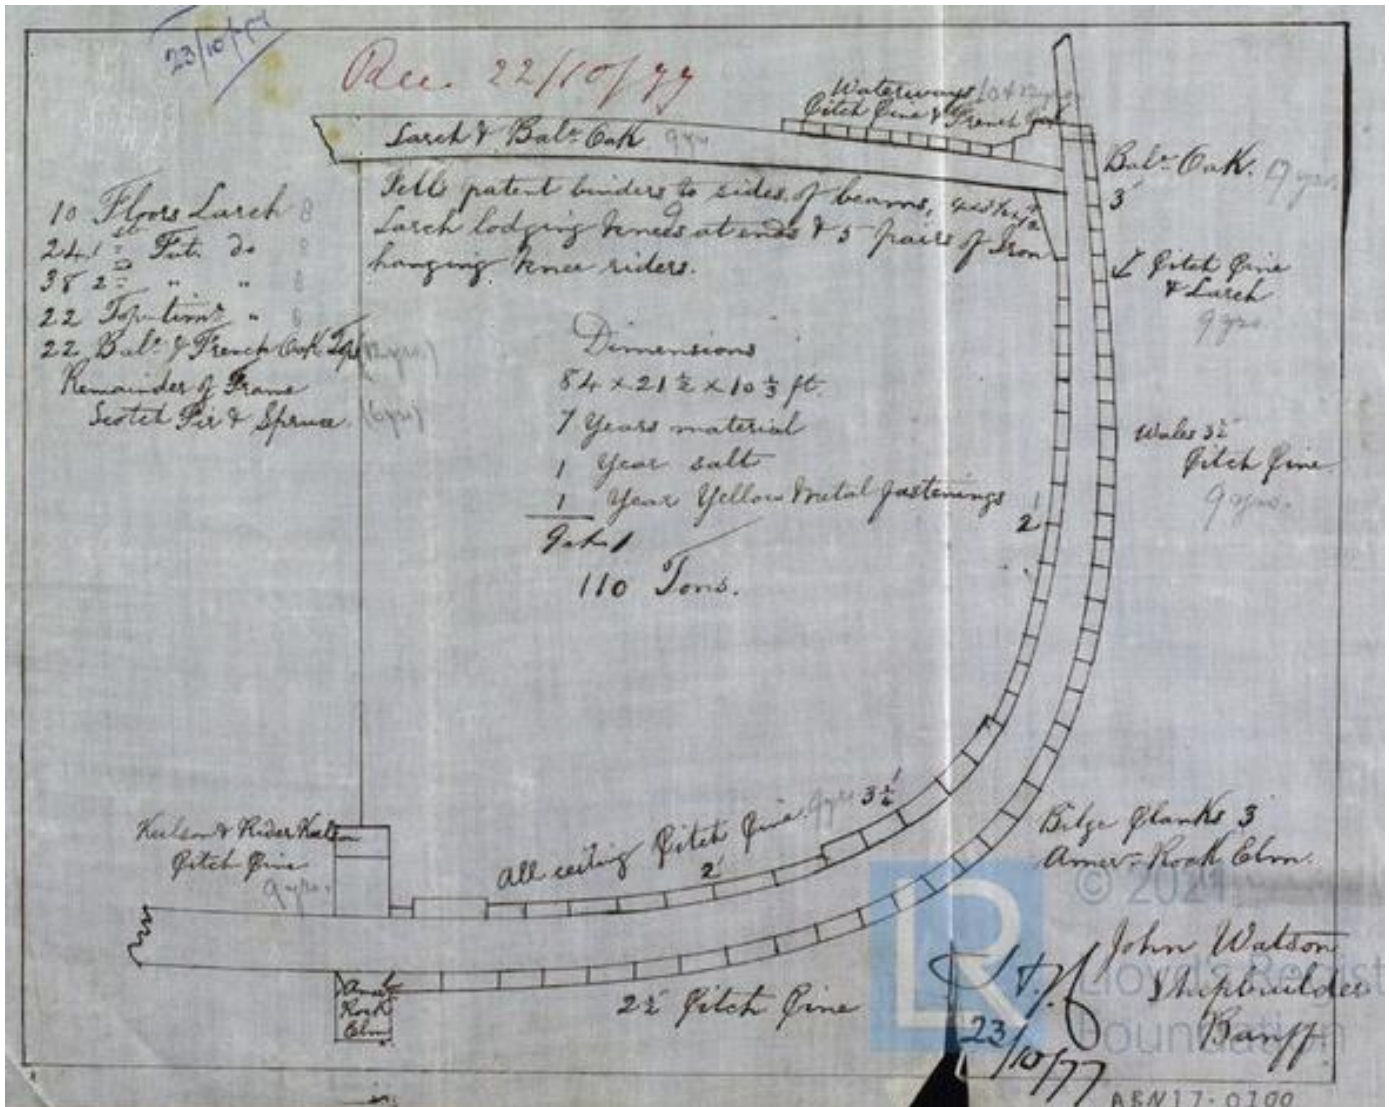 23/10/77
Rec. 22/10/77
Waterways 10 & 12 yrs.
Pitch Pine & French Oak
Larch & Balt: Oak 9 yrs
Balt: Oak. 19 yrs.
3"
Tell's patent binders to sides of beams,
Larch lodging knees at ends & 5 pairs of Iron
hanging knee riders.
10 Floors Larch 8
24 1st Fut. do 8
38 2nd " " 8
22 Top-timrs " 8
22 Balt: & French Oak Tops (12 yrs.)
Remainder of Frame
Scotch Fir & Spruce. (6 yrs)
Pitch Pine
& Larch
9 yrs.
Dimensions
84 x 21 ½ x 10 ⅓ ft.
7 Years material
1 Year salt
1 Year Yellow Metal fastenings
9 A 1
110 Tons.
Wales 3½"
Pitch Pine
9 yrs.
2"
Keelson & Rider Keelson
Pitch Pine
9 yrs.
All ceiling Pitch Pine 9 yrs 3½"
2"
Bilge Planks 3
Amer: Rock Elm.
Amer
Rock
Elm
2½ Pitch Pine
John Watson
Shipbuilder
Banff
23/10/77
© 2021
Lloyd's Regist
Foundation
LR
ABN17-0100